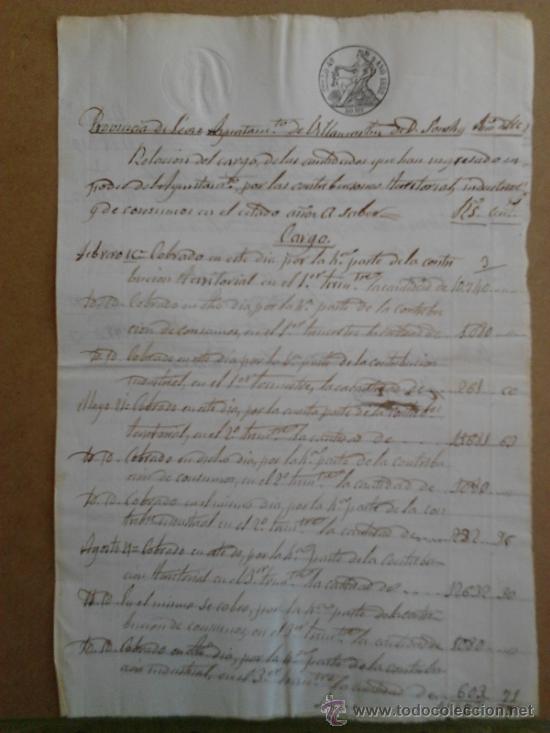 Provincia de Leon Ayuntam.to de Villamartin de D. Sancho Año de
Relacion del cargo, de las cantidades que han ingresado en
poder del Ayuntam.to, por las contribuciones territorial, industrial
y de consumos en el citado año. A saber
Rs. cent.
Cargo.
Febrero Cobrado en este dia por la 4.a parte de la contri
bucion territorial en el 1.er trim.tre la cantidad de 10.740
Yd. Yd. Cobrado en dho dia, por la 4.a parte de la contribu
cion de consumos, en el 1.er trimestre la cantidad de 1080
Yd. Yd. Cobrado en este dia por la 4.a parte de la contribucion
industrial, en el 1.er trimestre, la cantidad de 261
Mayo Cobrado en este dia, por la cuarta parte de la
territorial, en el 2.o trim.tre la cantidad de
Yd. Yd. Cobrado en dicho dia, por la 4.a parte de la contribu
cion de consumos, en el 2.o trim.tre la cantidad de 1080
Yd. Yd. Cobrado en el mismo dia, por la 4.a parte de la con
industrial en el 2.o trim.tre la cantidad de 232
Agosto Cobrado en este dia, por la 4.a parte de la contribu
cion territorial en el 3.er trim.tre la cantidad de 12632
Yd. Yd. En el mismo se cobró, por la 4.a parte de la contri
bucion de consumos, en el 3.er trim.tre la cantidad de 1080
Yd. Yd. Cobrado en dho dia, por la 4.a parte de la contribu
cion industrial, en el 3.er trim.tre la cantidad de 603 71
todocoleccion
www.todocoleccion.net